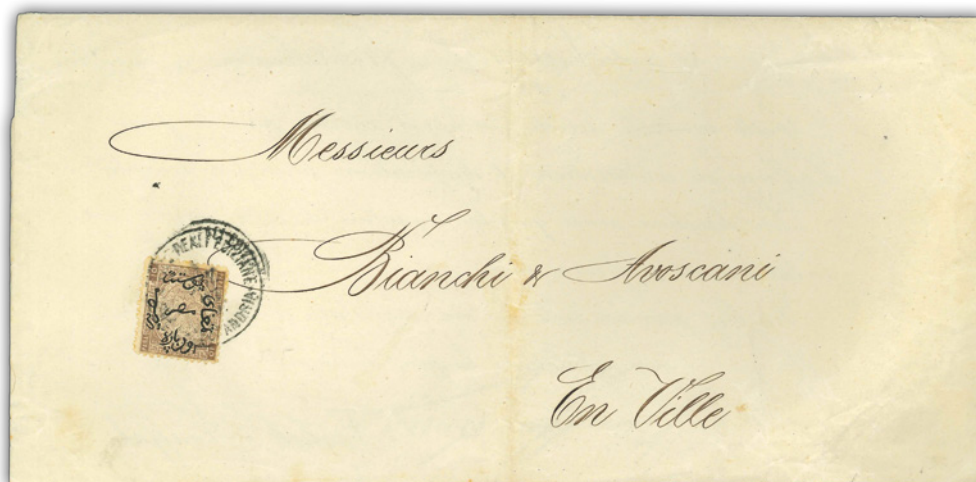 Messieurs
Bianchi & Avoscani
En Ville